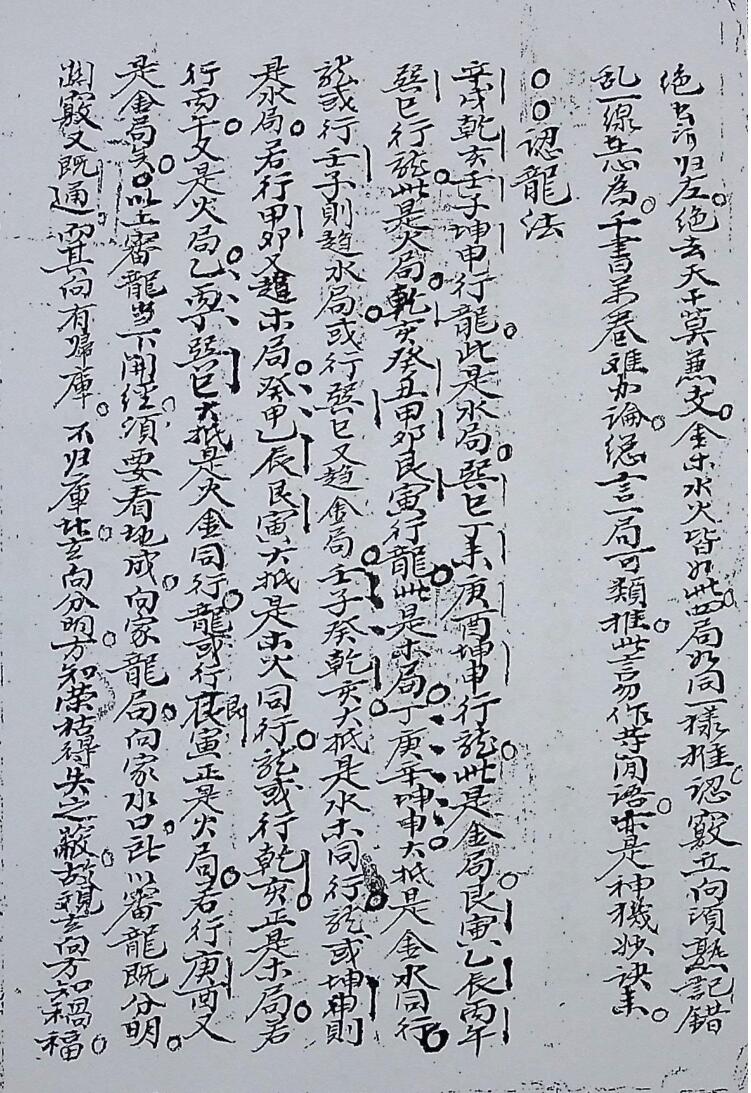 绝去消归左绝去天干莫兼支。金木水火皆如此。四局如同一樣推。認竅立向須熟記錯
乱一線悲為。千書萬卷难尽論。總言一局可類推。此言勿作等閒語。亦是神機妙訣末。
○○認龍法
辛戌乾亥壬子坤申行龍。此是水局。巽巳丁未庚酉坤申行龍。此是金局。艮寅乙辰丙午
巽巳行龍。此是火局。乾亥癸丑甲卯艮寅行龍。此是木局。丁庚辛坤申。大抵是金水同行。
龍或行壬子則趋水局。或行巽巳又趋金局。壬子癸乾亥。大抵是水木同行。龍或坤申則
是水局。若行甲卯又趋木局。癸甲乙辰艮寅。大抵是木火同行。龍或行乾亥。正是木局。若
行丙午。又是火局。乙丙丁巽巳。大抵是火金同行。龍或行艮寅。即正是火局。若行庚酉又
是金局矣。以上審龍当下開经。須要看地成何家龍局。向家水口。所以審龍既分明。
関竅又既通。而其向有歸庫。不归庫。此立向分明。方知荣枯得失之蔽。故觀立向方知禍福。